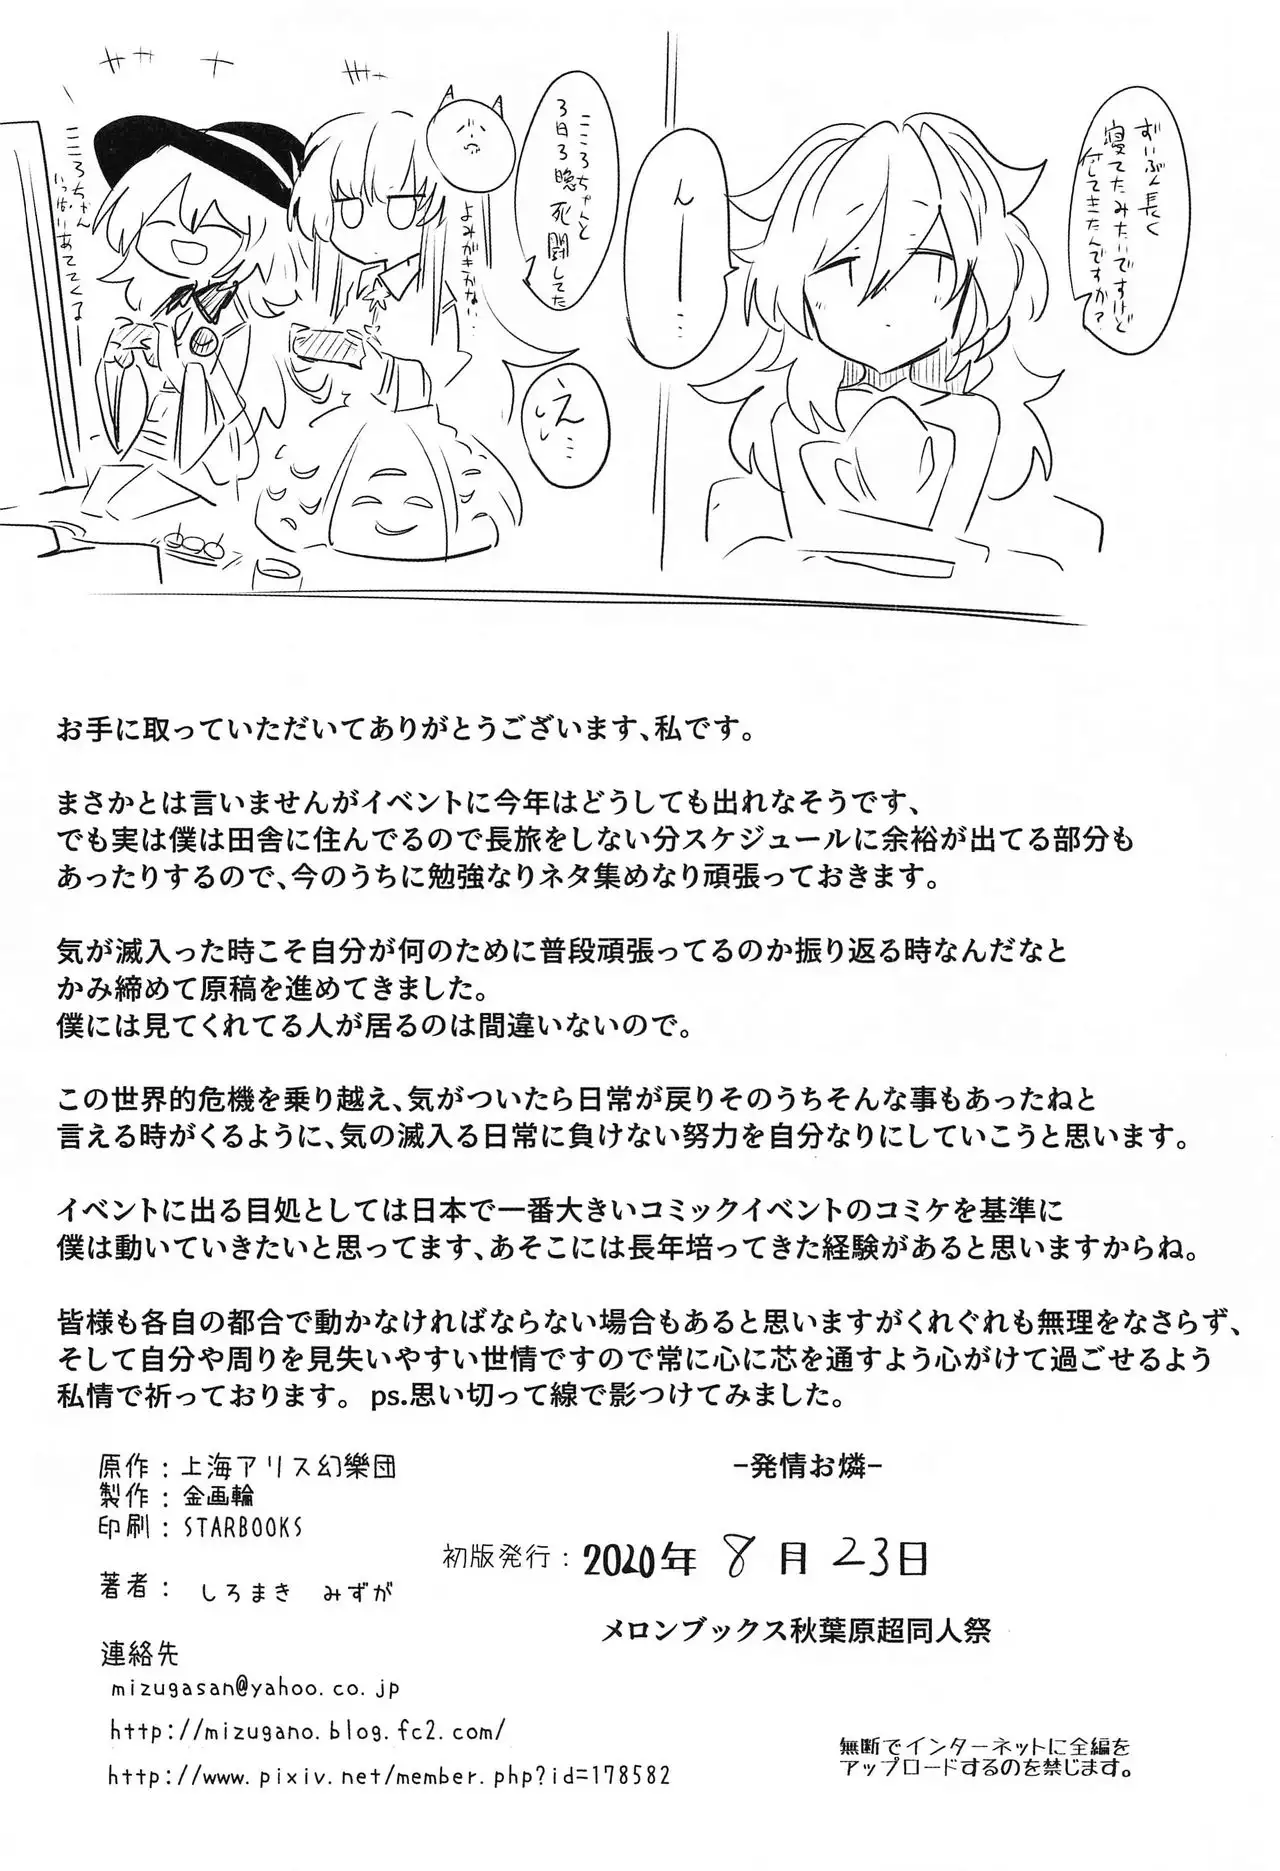 ずいぶん長く
寝てたみたいですけど
何してきたんですか?
んー…
こころちゃんと
3日3晩死闘してた
え…
よみがきかない…
こころちゃん
いっぱいあててくるー
お手に取っていただいてありがとうございます、私です。
まさかとは言いませんがイベントに今年はどうしても出れなそうです、
でも実は僕は田舎に住んでるので長旅をしない分スケジュールに余裕が出てる部分も
あったりするので、今のうちに勉強なりネタ集めなり頑張っておきます。
気が滅入った時こそ自分が何のために普段頑張ってるのか振り返る時なんだなと
かみ締めて原稿を進めてきました。
僕には見てくれてる人が居るのは間違いないので。
この世界的危機を乗り越え、気がついたら日常が戻りそのうちそんな事もあったねと
言える時がくるように、気の滅入る日常に負けない努力を自分なりにしていこうと思います。
イベントに出る目処としては日本で一番大きいコミックイベントのコミケを基準に
僕は動いていきたいと思ってます、あそこには長年培ってきた経験があると思いますからね。
皆様も各自の都合で動かなければならない場合もあると思いますがくれぐれも無理をなさらず、
そして自分や周りを見失いやすい世情ですので常に心に芯を通すよう心がけて過ごせるよう
私情で祈っております。 ps.思い切って線で影つけてみました。
原作:上海アリス幻樂団
製作:金画輪
印刷:STARBOOKS
著者: しろまき みずが
連絡先
mizugasan@yahoo.co.jp
http://mizugano.blog.fc2.com/
http://www.pixiv.net/member.php?id=178582
−発情お燐−
初版発行:2020年 8月 23日
メロンブックス秋葉原超同人祭
無断でインターネットに全編を
アップロードするのを禁じます。